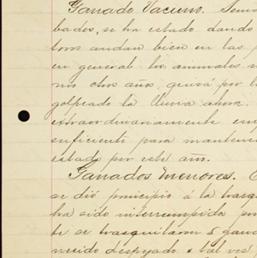 Ganado Vacuno.
bados, se ha estado dando
toros andan bien en las
en general los animales
nos otros años, quizá por l
golpeado la lluvia ahora.
extraordinariamente
suficiente para mantene
estado por este año.
Ganados Menores.
se dió principio á la trasqu
ha sido interrumpida po
te se trasquilaron 5 gana
necido despejado & tal vez